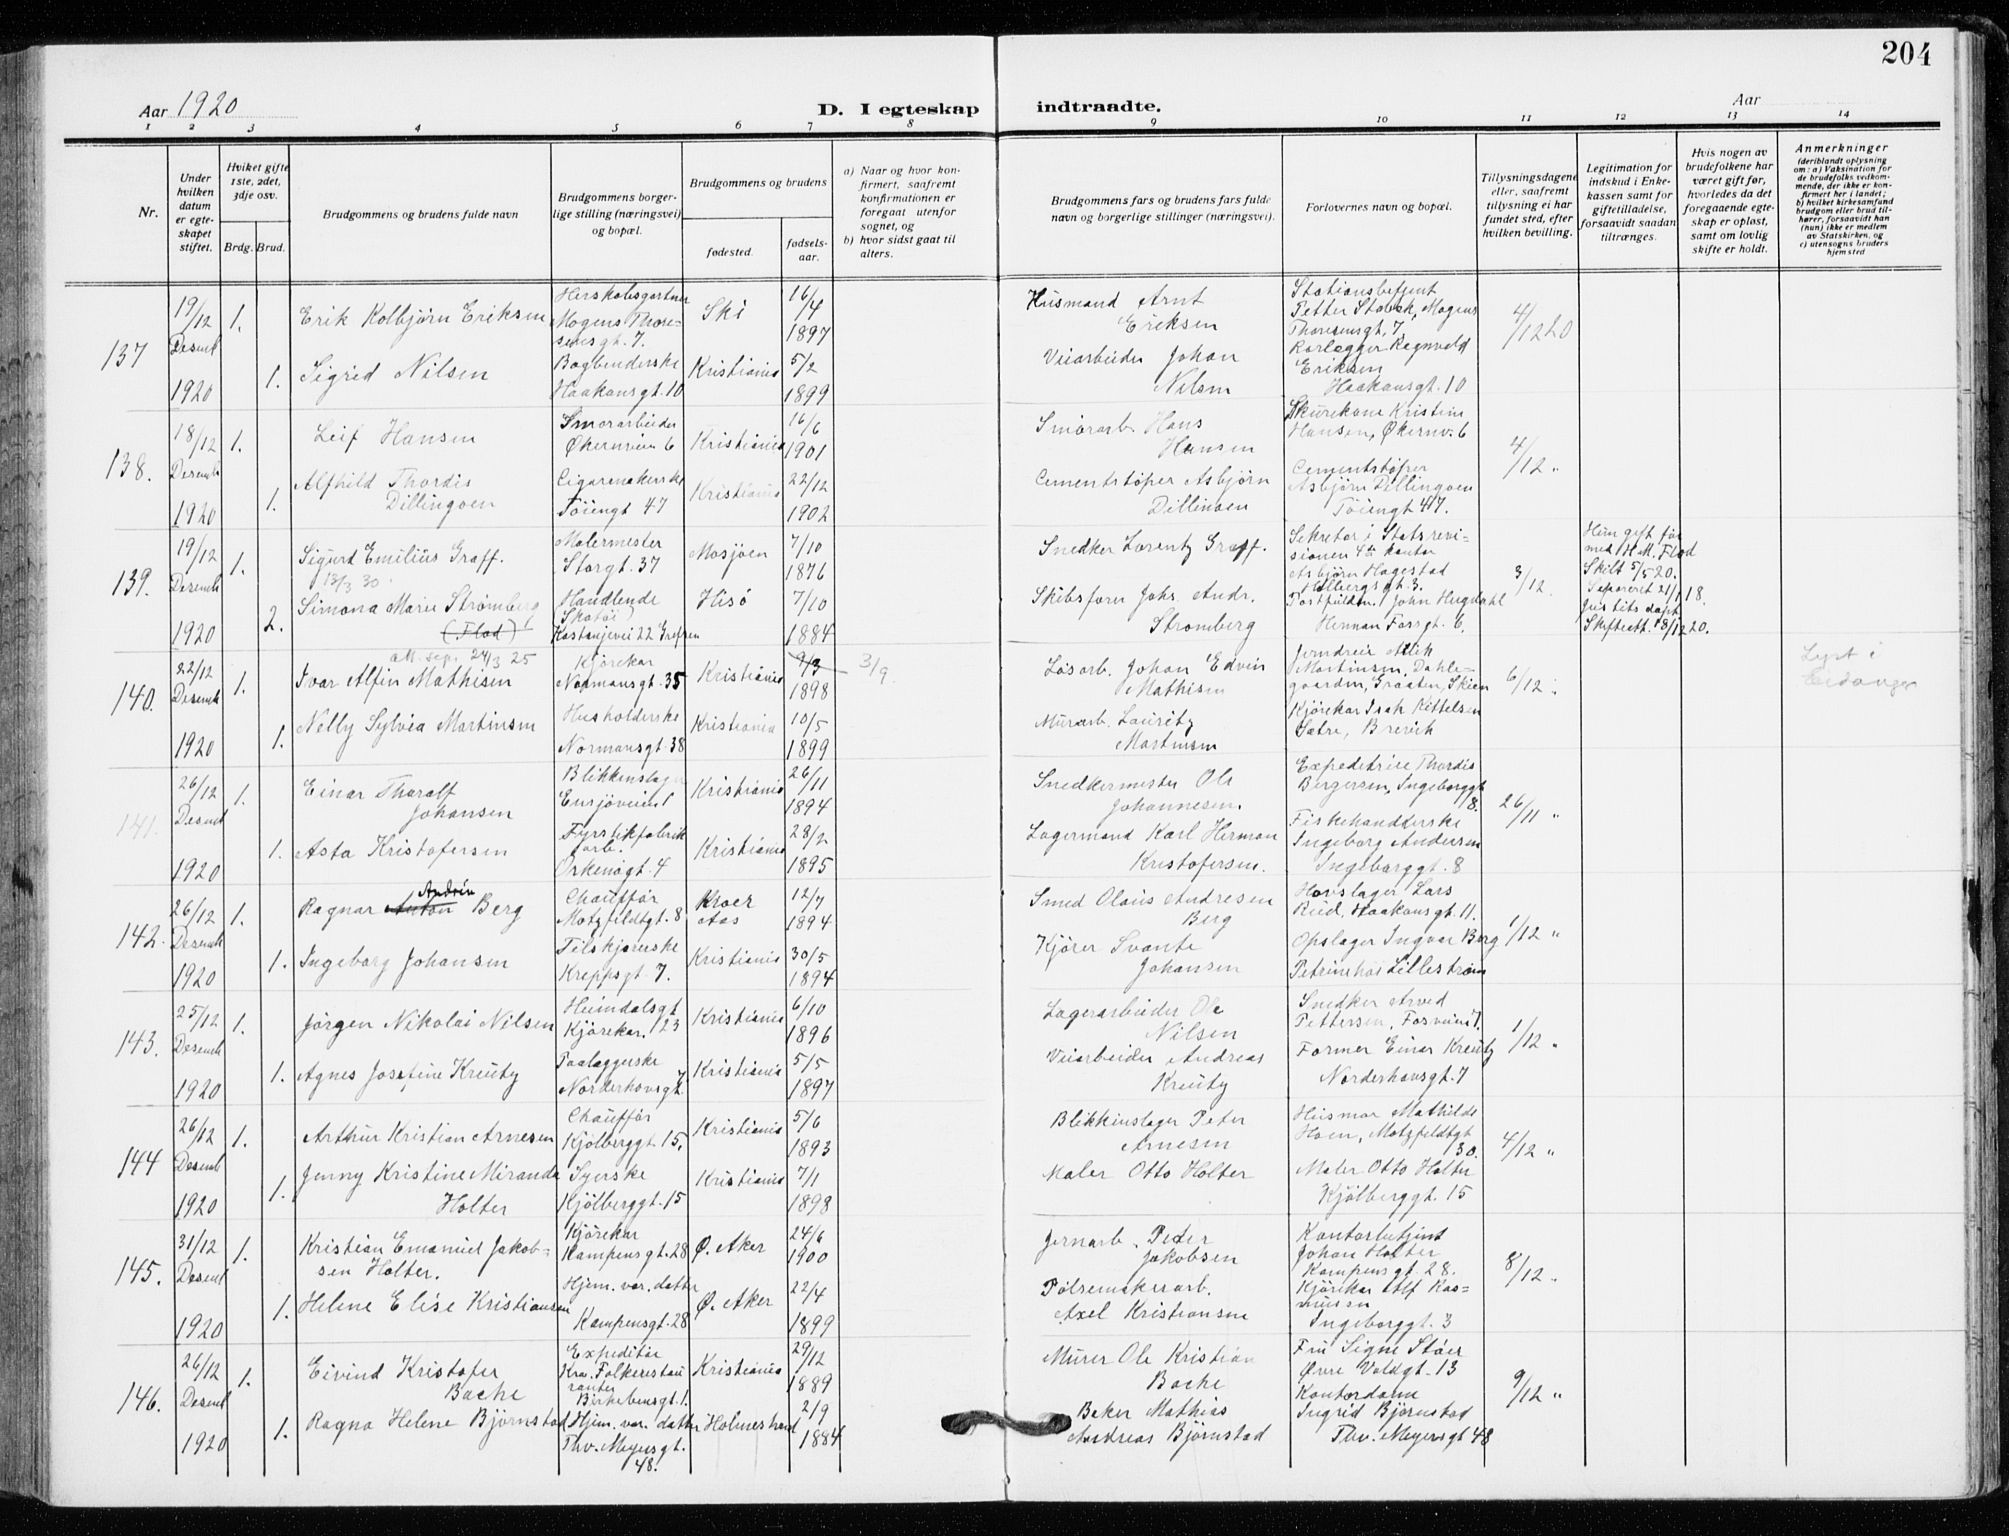 204
Aar 1920
D. I egteskap indtraadte.
Aar
1 2 3 4 5 6 7 8 9 10 11 12 13 14
Nr.
Under hvilken datum er egteskapet stiftet.
Hvilket gifte 1ste, 2det, 3dje osv.
Brdg. Brud.
Brudgommens og brudens fulde navn
Brudgommens borgerlige stilling (næringsvei) og bopæl.
Brudgommens og brudens
fødested.
fødselsaar.
a) Naar og hvor konfirmert, saafremt konfirmationen er foregaat utenfor sognet, og
b) hvor sidst gaat til alters.
Brudgommens fars og brudens fars fulde navn og borgerlige stillinger (næringsvei).
Forlovernes navn og bopæl.
Tillysningsdagene eller, saafremt tillysning ei har fundet sted, efter hvilken bevilling.
Legitimation for indskud i Enkekassen samt for giftetilladelse, forsaavidt saadan tiltrænges.
Hvis nogen av brudefolkene har været gift før, hvorledes da det foregaaende egteskap er opløst, samt om lovlig skifte er holdt.
Anmerkninger
(deriblandt oplysning om: a) Vaksination for de brudefolks vedkommende, der ikke er konfirmert her i landet; b) hvilket kirkesamfund brudgom eller brud tilhører, forsaavidt han (hun) ikke er medlem av Statskirken, og c) utensogns bruders hjemsted
137
19/12 Desemb 1920
1.
Erik Kolbjörn Eriksen
Mogens Thoresensgt. 7.
Ski
16/4 1897
Husmand Arnt Eriksen
Stationsbetjent Petter Mogens Thoresensgt. 7
4/12 20
1.
Sigrid Nilsen
Bogbinderske Haakonsgt. 10
Kristiania
5/2 1899
Veiarbeider Johan Nilsen
Rørlegger Ragnvald Eriksen Haakonsgt. 10
138.
18/12 Desemb 1920
1.
Leif Hansen
Smörarbeider Økernveien 6
Kristiania
16/6 1901
Smörarb. Hans Hansen
Skurekone Kristine Hansen, Økernv. 6
4/12 "
1.
Alfhild Thordis Dillingöen
Cigarmakerske Töiengt 47
Kristiania
22/12 1902
Cementstöper Asbjörn Dillinöen
Cementstöper Asbjörn Dillingöen Töiengt 47.
139.
19/12 Desemb 1920
1.
Sigurd Emilius Graff.
13/3 30
Malermester Storgt. 37
Mosjøen
7/10 1876
Snedker Lorentz Graff.
Sekretær i Statsrevisionen 4de kontor Asbjörn Hagestad Holbergsgt 3.
3/12.
Hun gift før med H.M. Flod
Skilt 5/5 20.
Separeret 21/1 18.
Justits dept
Skifteatt. 8/12 20.
2.
Simona Marie Strömberg (Flod)
Handlende Skotöi Kastanjevei 22 Grefsen
Hisö
7/10 1884
Skibsfører Johs. Andr. Stromberg
John Hugdahl Herman Fossgt. 6.
140.
22/12 Desemb 1920
att. sep. 24/3 25
1.
Ivar Alfin Mathisen
Kjörekar Normansgt. 35
Kristiania
9/3 1898
3/9.
Lösarb. Johan Edvin Mathisen
Martinsen, Skien
6/12 "
Lyst i Eidanger
1.
Nelly Sylvia Martinsen
Husholderske Normansgt. 38
Kristiania
10/5 1899
Murarb. Lauritz Martinsen
Kjörekar Isak Kittelsen Sætre, Brevik
141.
26/12 Desemb 1920
1.
Einar Thoralf Johansen
Blikkenslager Ensjöveien 1
Kristiania
26/11 1894
Snedkermester Ole Johannesen.
Expeditrice Thordis Bergersen, Ingeborggt 8.
26/11 "
1.
Asta Kristofersen
Fyrstikfabrik arb. Orknögt. 4
Kristiania
28/2 1895
Lagermand Karl Herman Kristofersen.
Fiskehandlerske Ingeborg Andersen Ingeborggt. 8
142.
26/12 Desemb 1920
1.
Ragnar Anton Andrin Berg
Chauffør Motzfeldtgt. 8
Kroer Aas
12/7 1894
Smed Olaus Andresen Berg
Hovslager Lars Rud, Haakonsgt. 11.
1/12 "
1.
Ingeborg Johansen
Filskjærerske Kreppsgt. 7.
Kristiania
30/5 1894
Kjörer Svante Johansen
Opslager Ingvar Berg Petrinehöi Lilleström
143.
25/12 Desemb 1920
1.
Jörgen Nikolai Nilsen
Heimdalsgt Kjörekar. 23
Kristiania
6/10 1896
Lagerarbeider Ole Nilsen
Snedker Arved Pettersen, Forveien 1.
1/12 "
1.
Agnes Josefine Kreutz
Paalæggerske Norderhovsgt. 7
Kristiania
5/5 1897
Veiarbeider Andreas Kreutz
Former Einar Kreutz Norderhovsgt. 7
144
26/12 Desemb 1920
1.
Arthur Kristian Arnesen
Chauffør Kjölberggt. 15.
Kristiania
5/6 1893
Blikkenslager Peter Arnesen
Husmor Mathilde Hoen, Motzfeldtgt 30.
4/12 "
1.
Jenny Kristine Miranda Holter
Syerske Kjölberggt. 15
Kristiania
7/1 1898
Maler Otto Holter
Maler Otto Holter Kjölberggt. 15
145.
31/12 Desemb 1920
1.
Kristian Emanuel Jakobsen Holter.
Kjörekar Kampensgt. 28
Ø. Aker
24/6 1900
Jernarb. Peder Jakobsen
Kontorbetjent Johan Holter Kampensgt 28.
8/12 "
1.
Helene Elise Kristiansen
Hjem. vær. datter Kampensgt. 28
Ø. Aker
22/4 1899
Pölsemakerarb. Axel Kristiansen
Kjörekar Alf Rasmusen Ingeborggt. 3
146.
26/12 Desemb 1920
1.
Eivind Kristofer Bache
Expeditör Kra. Folkerestauranter Birkebensgt. 1.
Kristiania
29/12 1889
Murer Ole Kristian Bache
Fru Signe Støer Øvre Voldgt. 13
9/12 "
1.
Ragna Helene Björnstad
Hjem. vær. datter Thv. Meyersgt. 48.
Holmestrand
2/9 1884
Baker Mathias Andreas Björnstad
Kontordame Ingrid Bjørnstad Thv. Meyersgt 48